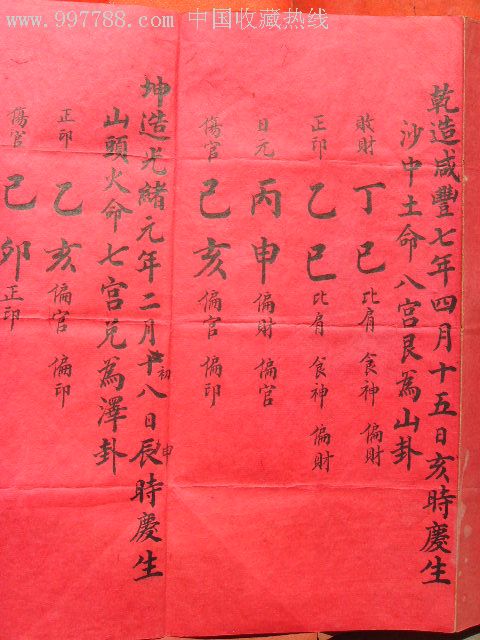 www.997788.com 中国收藏热线
乾造咸豐七年四月十五日亥時慶生
沙中土命八宫艮為山卦
敗財 丁巳 比肩 食神 偏財
正印 乙巳 比肩 食神 偏財
日元 丙申 偏財 偏官
傷官 己亥 偏官 偏印
坤造光緒元年二月十初八日辰申時慶生
山頭火命七宫兑為澤卦
正印 乙亥 偏官 偏印
傷官 己卯 正印